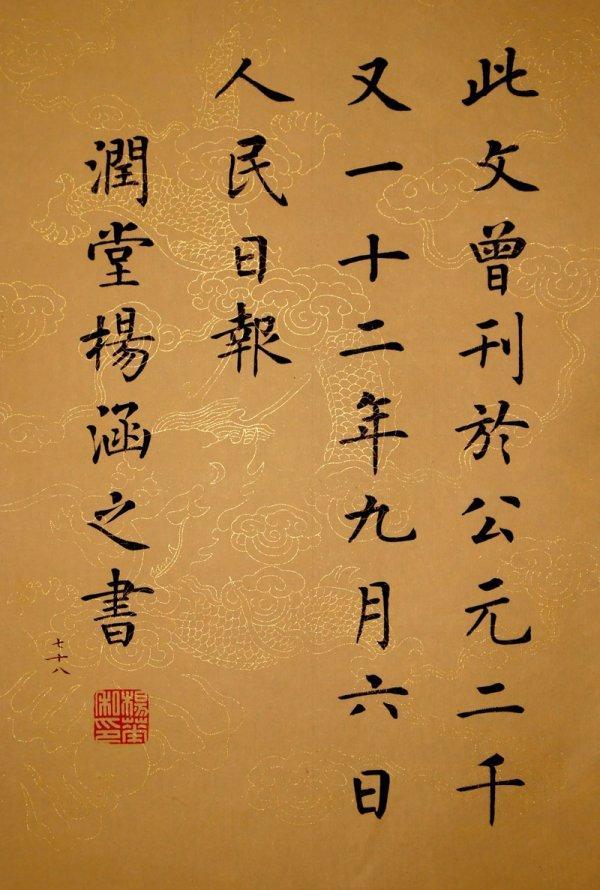 此文曾刊於公元二千
又一十二年九月六日
人民日報
潤堂楊涵之書
七十八